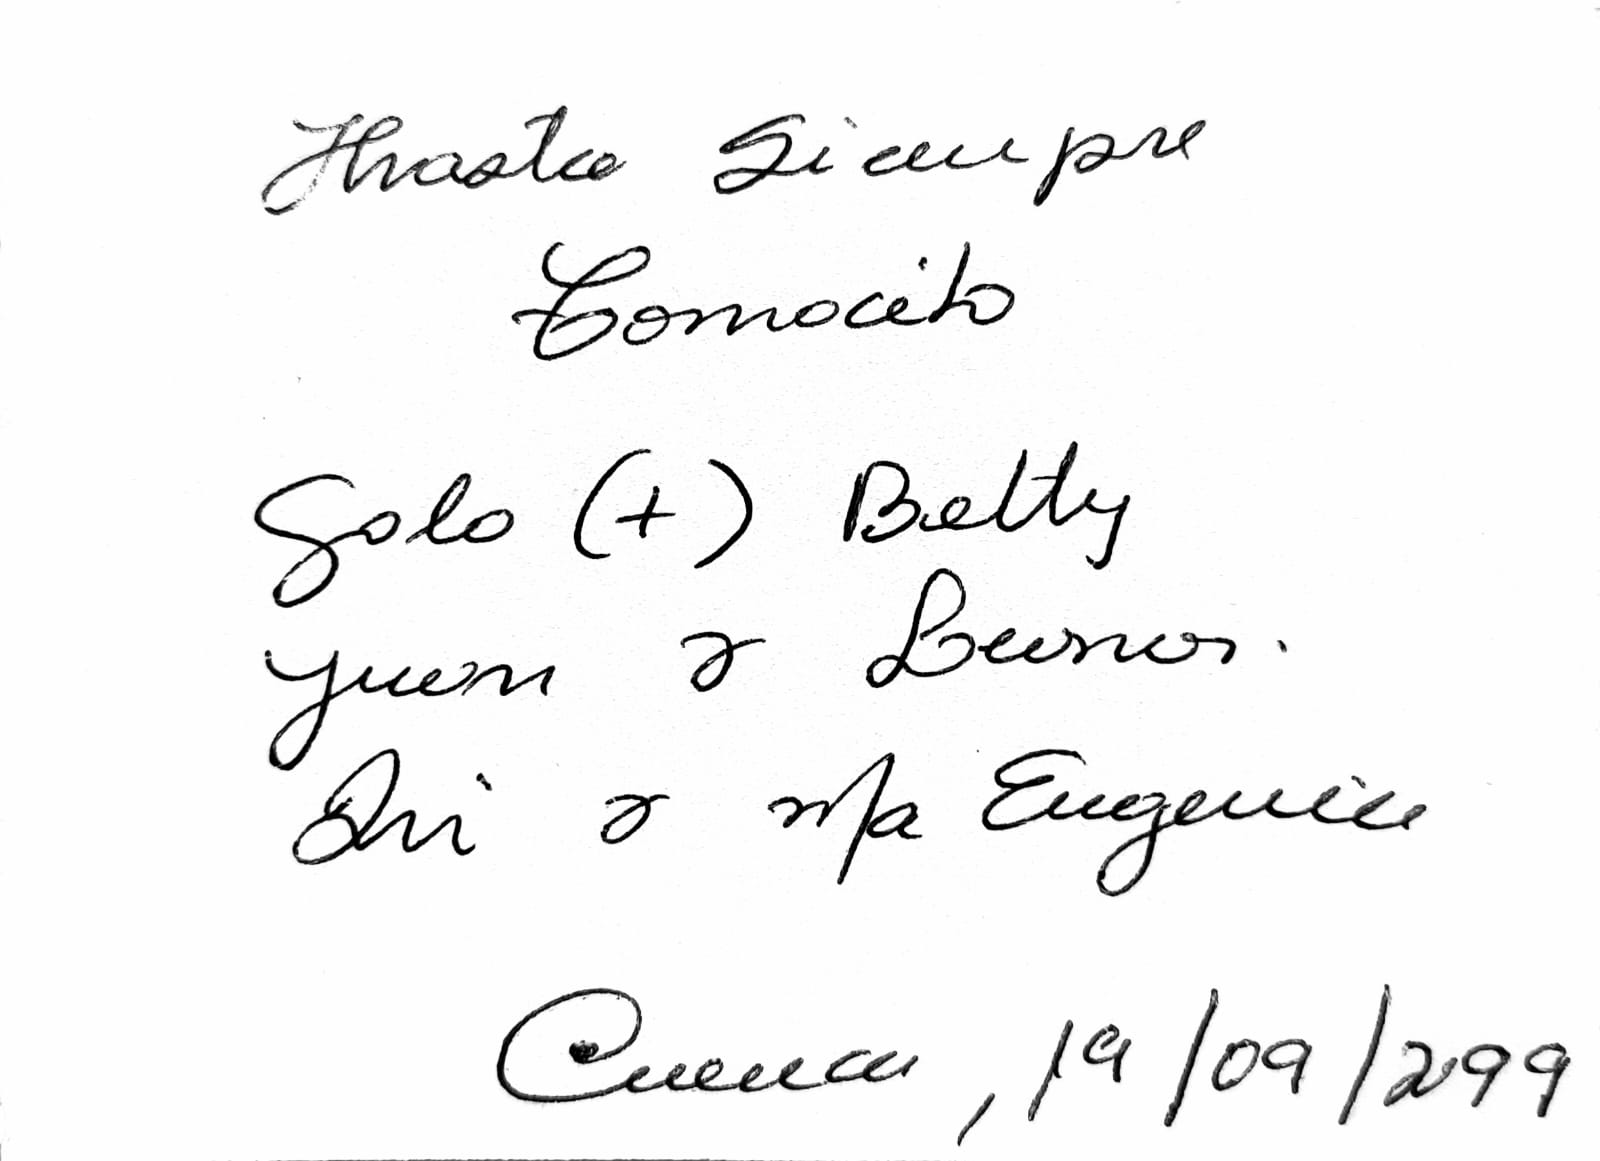 Hasta siempre
Tomacito
Golo (+) Betty
Yuon y Leonor.
Ovi y m/a Eugenia
Cuenca, 19/09/299